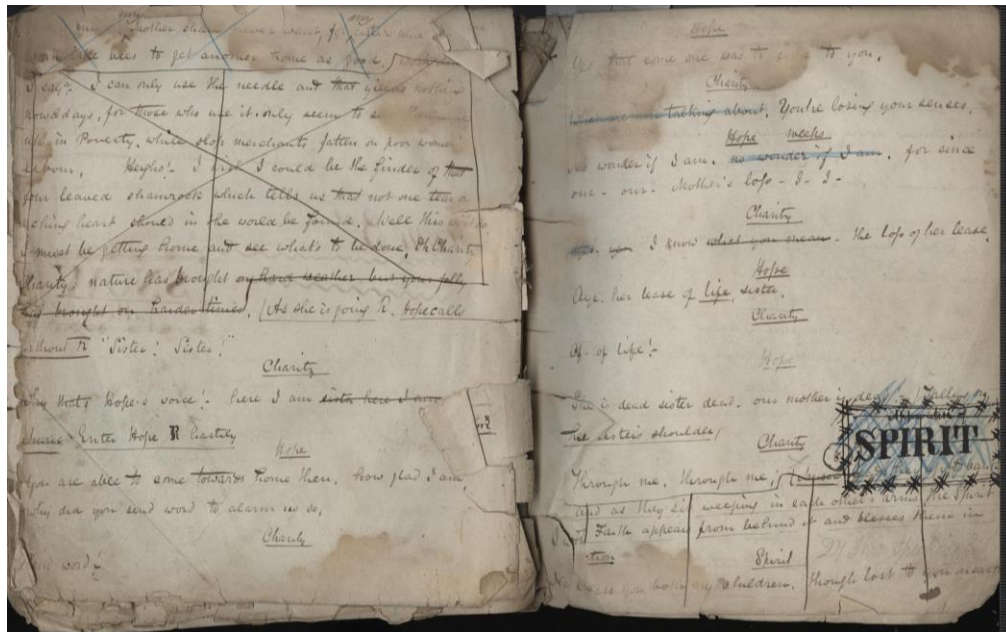 my my
my Mother shall never want for
bees to get another home as good.
I say? I can only use the needle and that yields nothing
nowadays, for those who use it only seem to
in Poverty, while slop merchants fatten on poor
labour. Heigho! I wish I could be the finder of that
four leaved shamrock which tells us that not one tear or
aching heart should in the world be found. Well this
I must be getting home and see what's to be done. Oh Charity
Charity. nature has brought on hard weather but your folly
has brought on harder times. (As she is going R. Hope calls
without R "Sister! Sister!"
Charity
Why that's Hope's voice! here I am sister here I am
Enter Hope R hastily
Hope
You are able to come towards home then, how glad I am,
why did you send word to alarm us so.
Charity
word?
Hope
Yes that some one was to to you.
Charity
talking about. You're losing your senses.
Hope weeks
No wonder if I am. no wonder if I am. for since
our - our - Mother's loss - I - I -
Charity
yes. I know what you mean - the loss of her lease.
Hope
Aye, her lease of life, sister.
Charity
Of - of life!-
Hope
She is dead sister dead. our mother is dead (Falls on
her sister's shoulder)
SPIRIT
Charity
Through me, through me;
and as they sit weeping in each other's arms the Spirit
Faith appears from behind it and blesses them in
tion
Spirit
bless you both my children, though lost to you